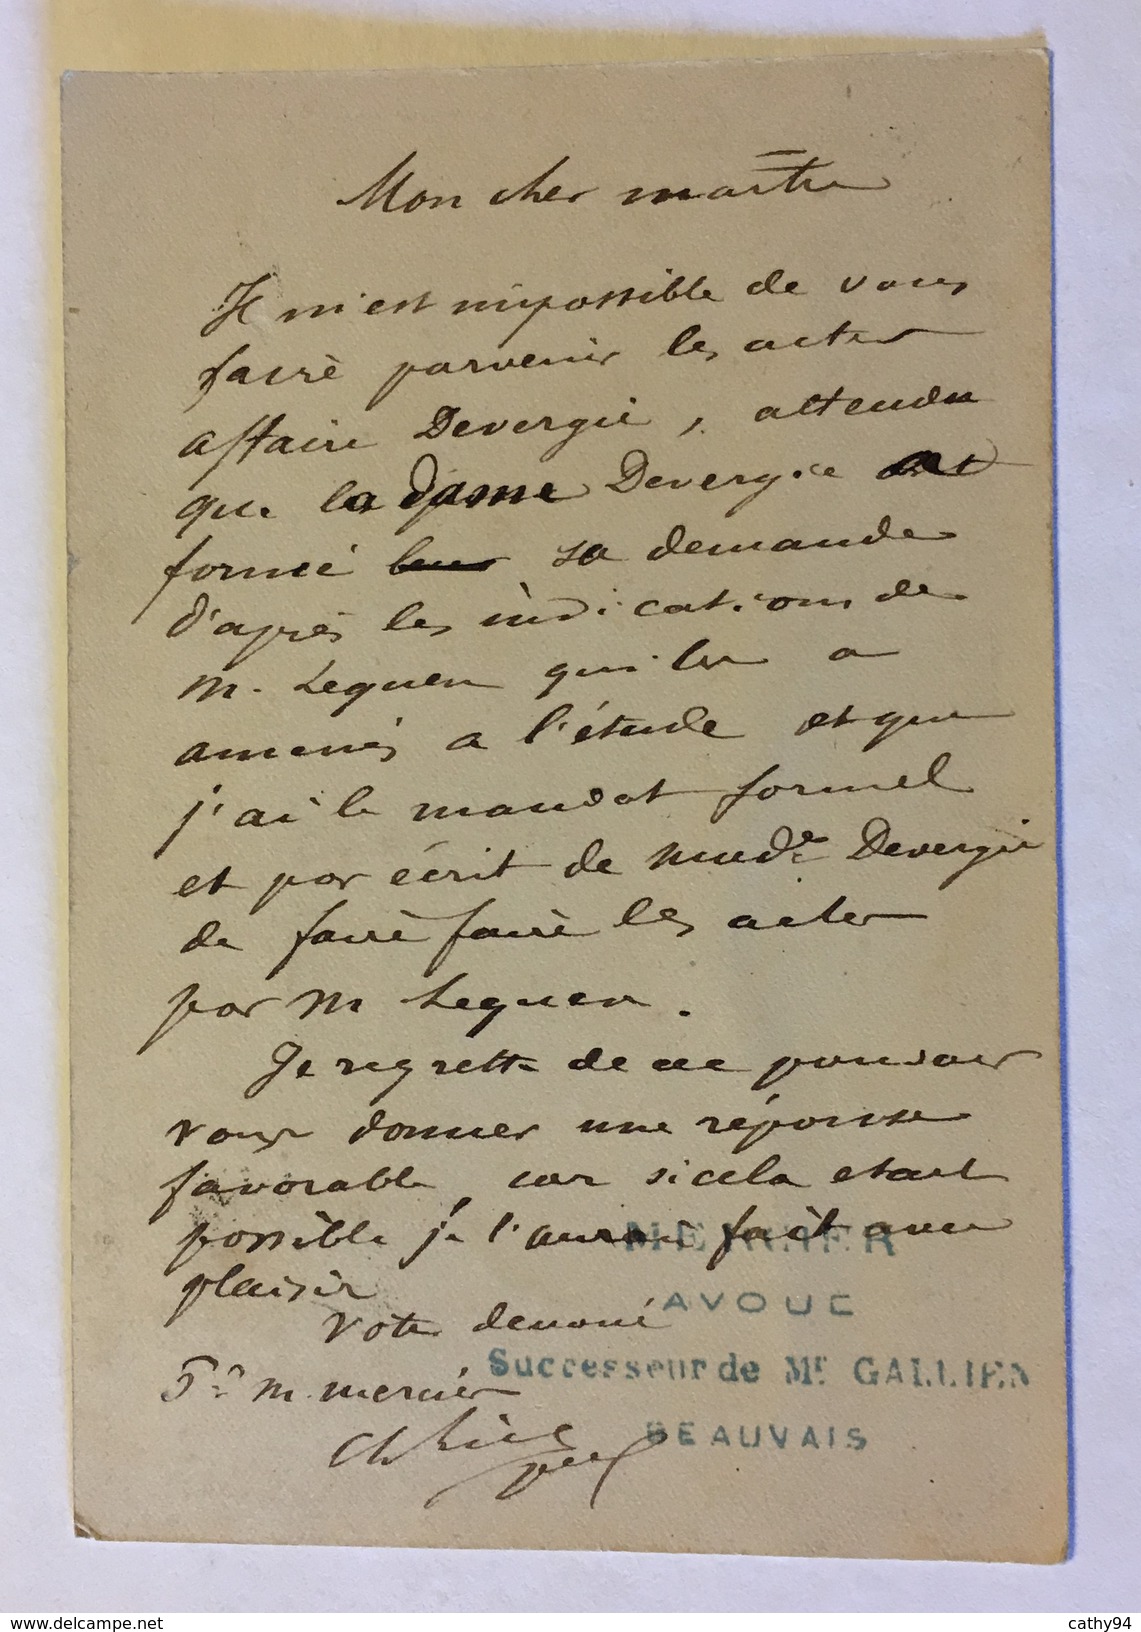 Mon cher maître
Il m'est impossible de vous
faire parvenir les actes
affaire Devergie, attendu
que la dame Devergie a
formé sa demande
d'après les indications de
M. Lequen qui les a
amenés a l'étude et que
j'ai le mandat formel
et par écrit de Made Devergie
de faire faire les actes
par M Lequen.
Je regrette de ne pouvoir
vous donner une réponse
favorable, car si cela etait
possible je l'aurai fait avec
plaisir
Votre dévoué
Pr M. Mercier
MERCIER
AVOUÉ
Successeur de Mr. GALLIEN
BEAUVAIS
delcampe.net
cathy94